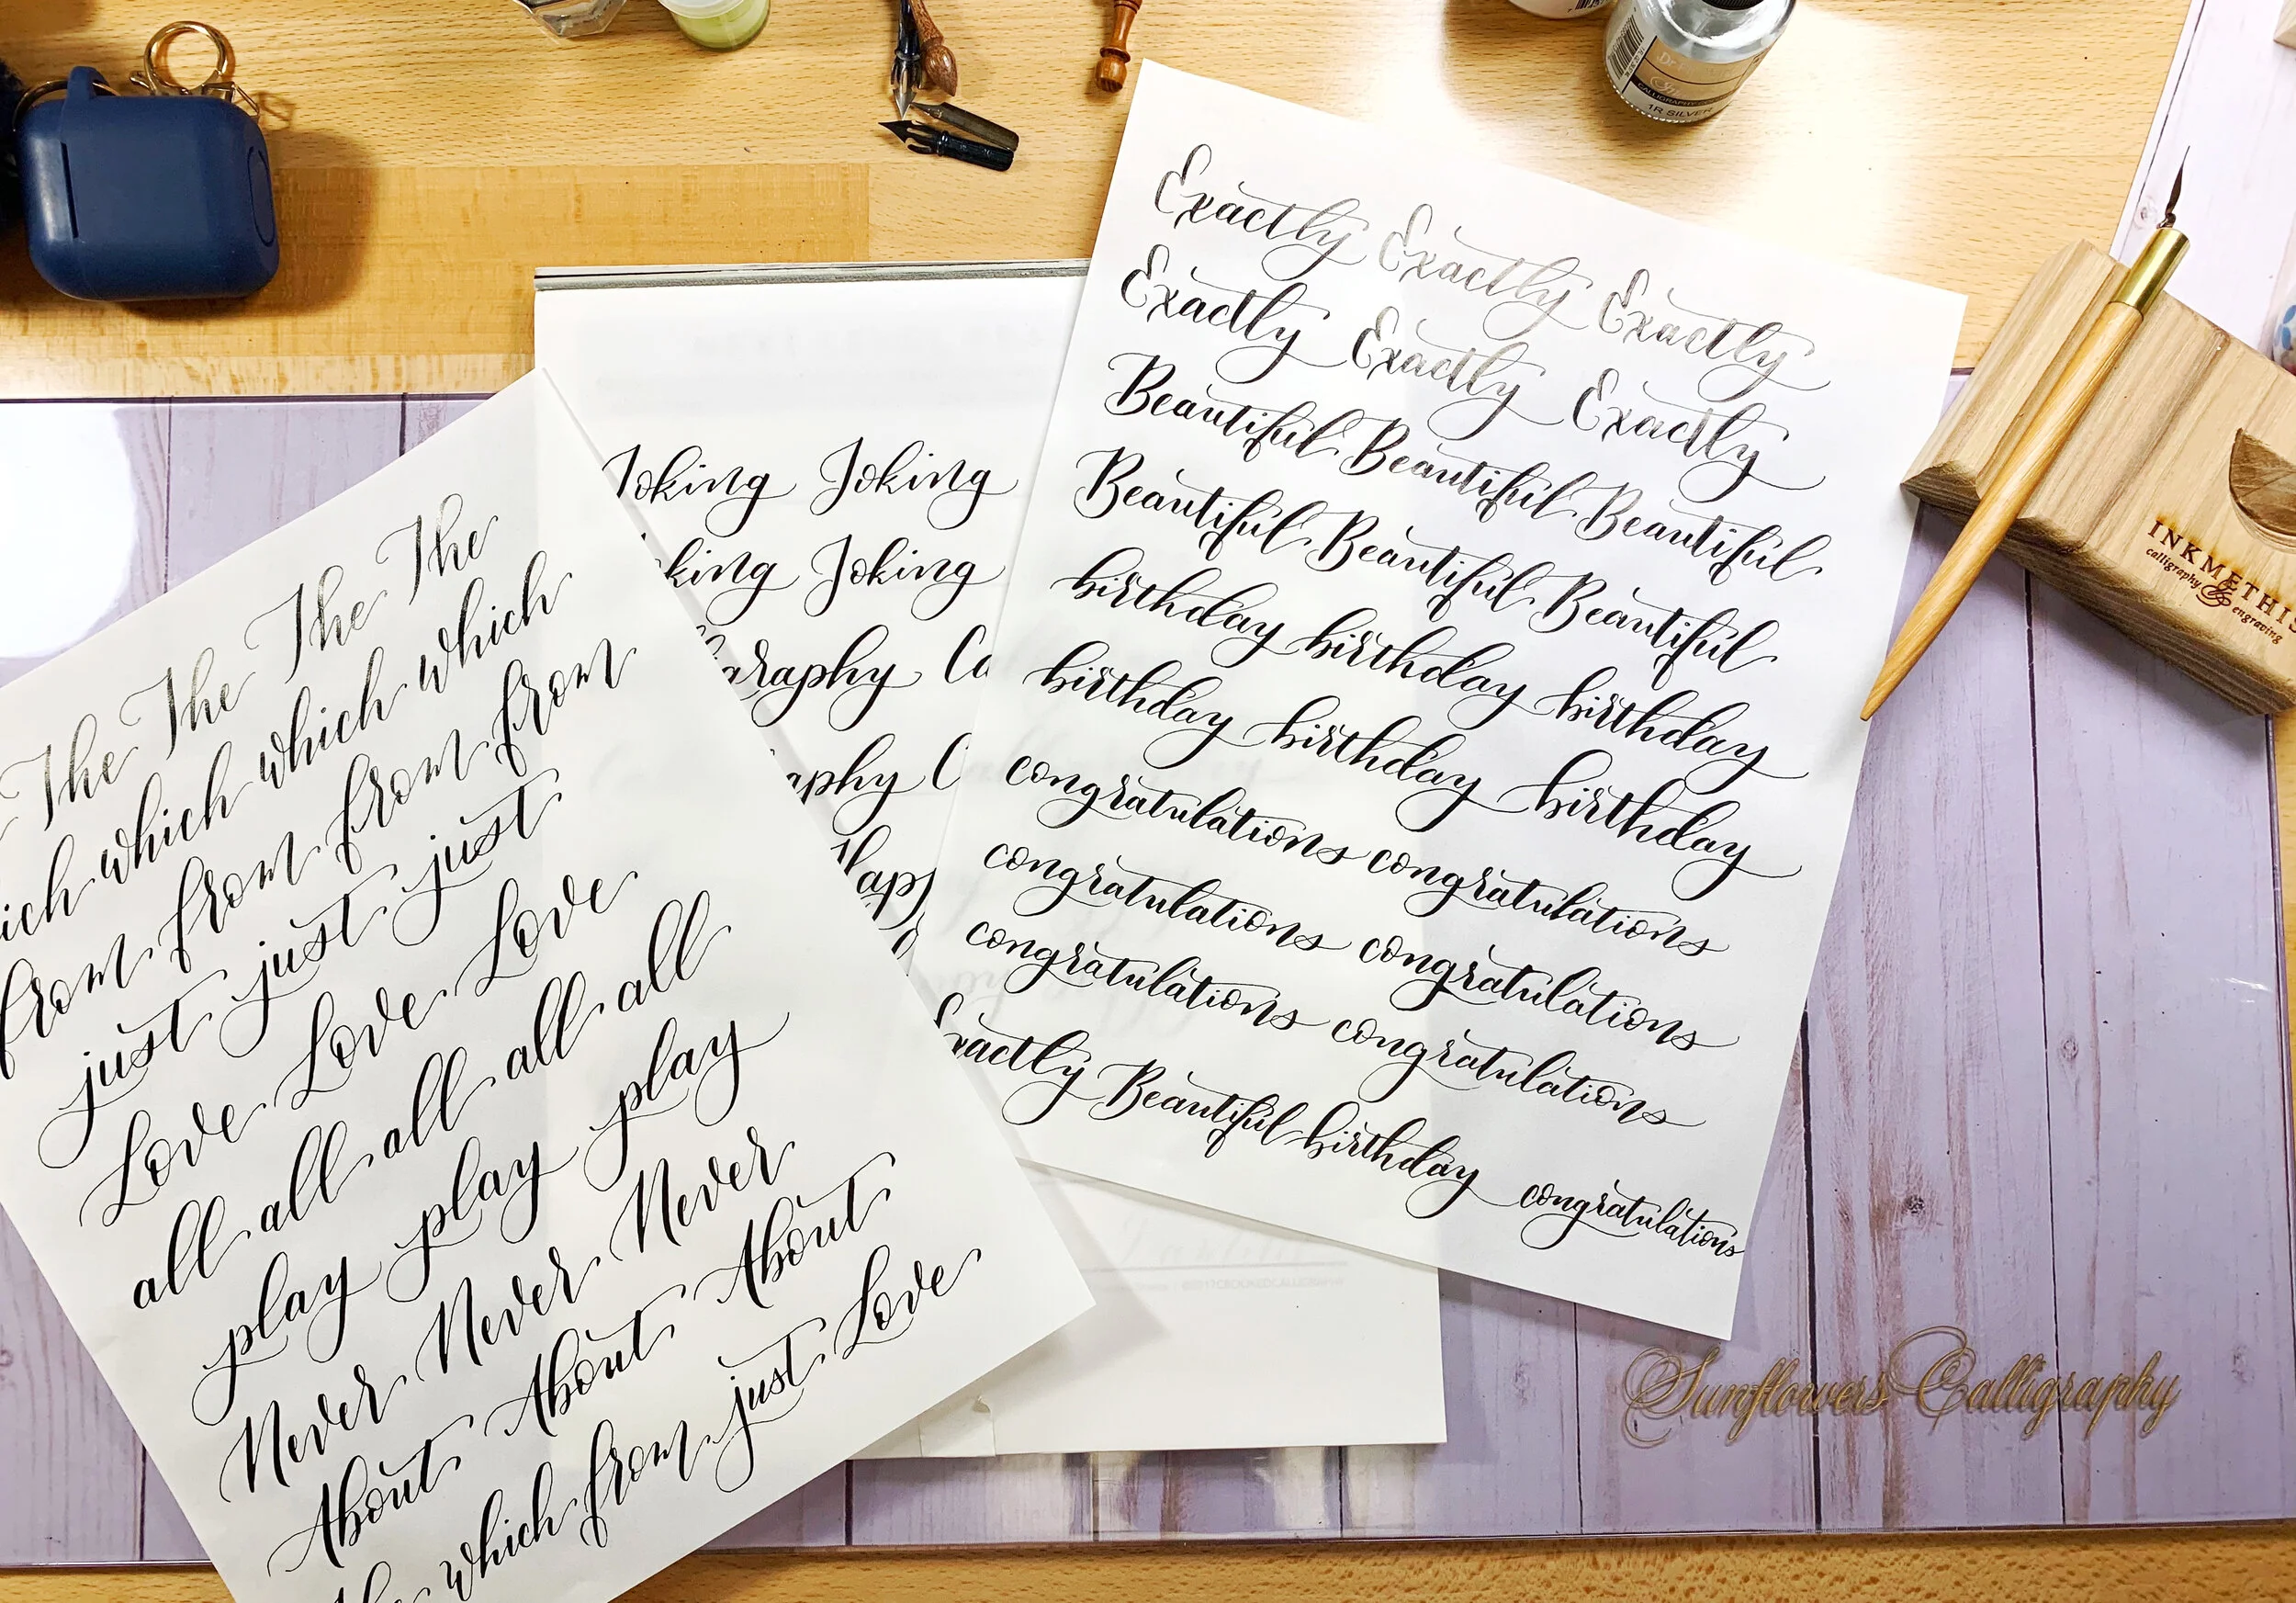 The The The The
which which which
from from from from
just just just
Love Love Love
all all all all
play play play
Never Never Never
About About About
which from just Love
Joking
Joking
Exactly Exactly Exactly
Exactly Exactly Exactly
Beautiful Beautiful Beautiful
Beautiful Beautiful Beautiful
birthday birthday birthday
birthday birthday birthday
congratulations congratulations
congratulations congratulations
congratulations congratulations
Beautiful birthday congratulations
1R SILVER
INKMETHIS
calligraphy & engraving
Sunflowers Calligraphy